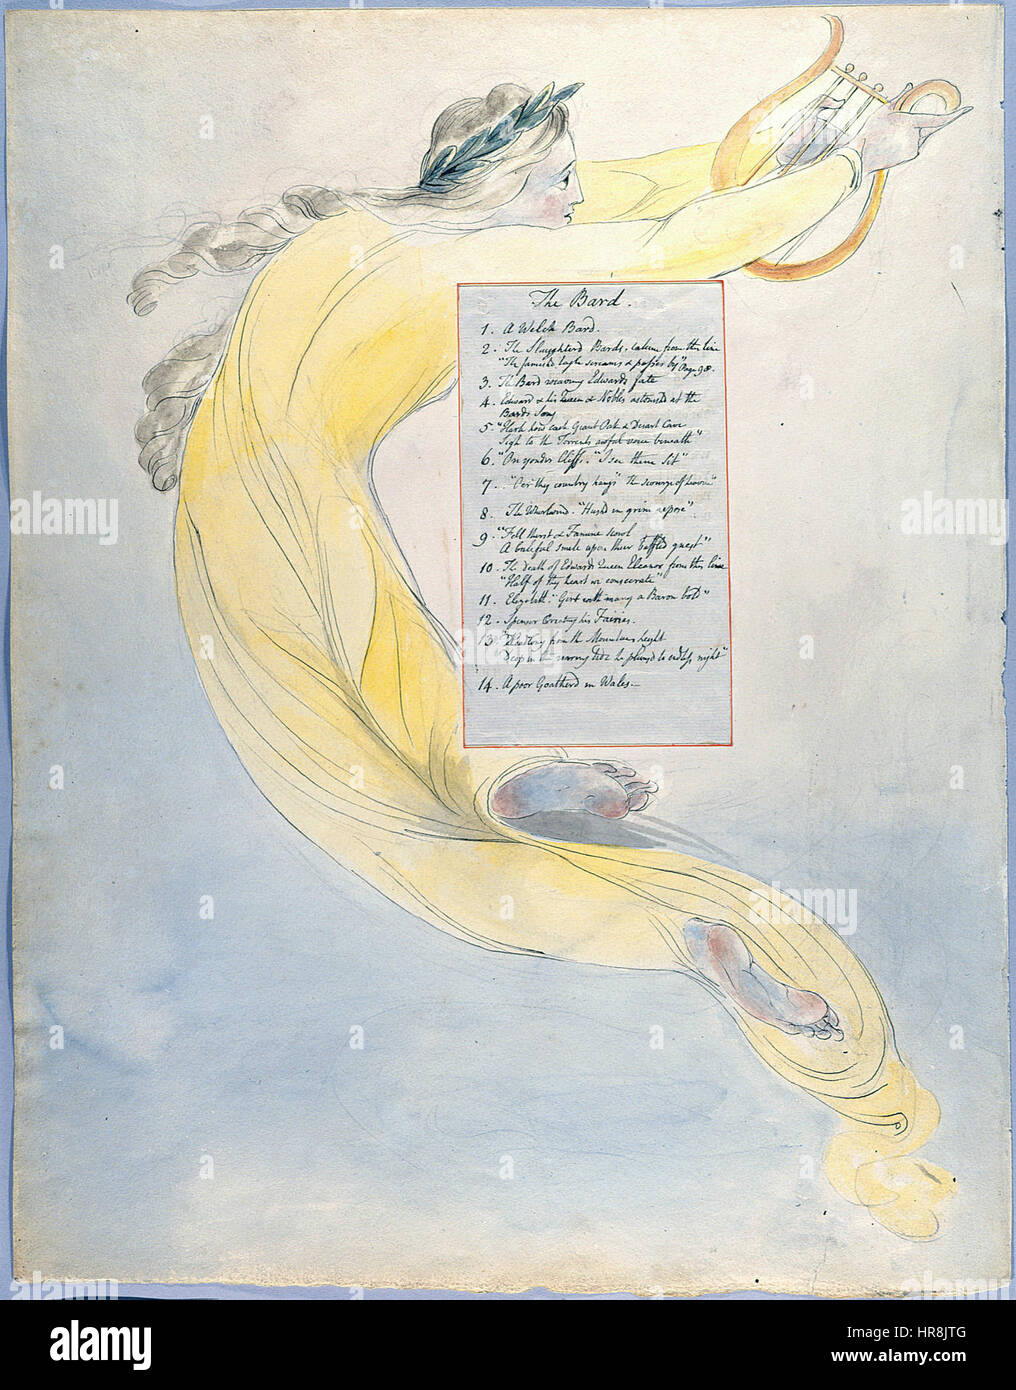 The Bard.
1. A Welch Bard.
2. The Slaughterd Bards, taken from the line
"The famishd Eagle screams & passes by" Page 98.
3. The Bard weaving Edwards fate
4. Edward & his Queen & Nobles astonishd at the
Bards Song
5. "Hark how each Giant Oak & Desart Cave
Sigh to the Torrents awful voice beneath"
6. "On yonder Cliffs "I see them Sit"
7. "Oer thy country hangs The scourge of heaven"
8. The Whirlwind. "Hushd in grim repose"
9. "Fell thirst & Famine scowl
A baleful smile upon their baffled guest"
10. The death of Edwards Queen Eleanor from this line
"Half of thy heart we consecrate"
11. Elizabeth "Girt with many a Baron bold"
12. Spenser Creating his Fairies.
13 "Headlong from the Mountains height
Deep in the roaring tide he plung'd to endless night"
14. A poor Goatherd in Wales.
alamy
alamy
Image ID: HR8JTG
www.alamy.com